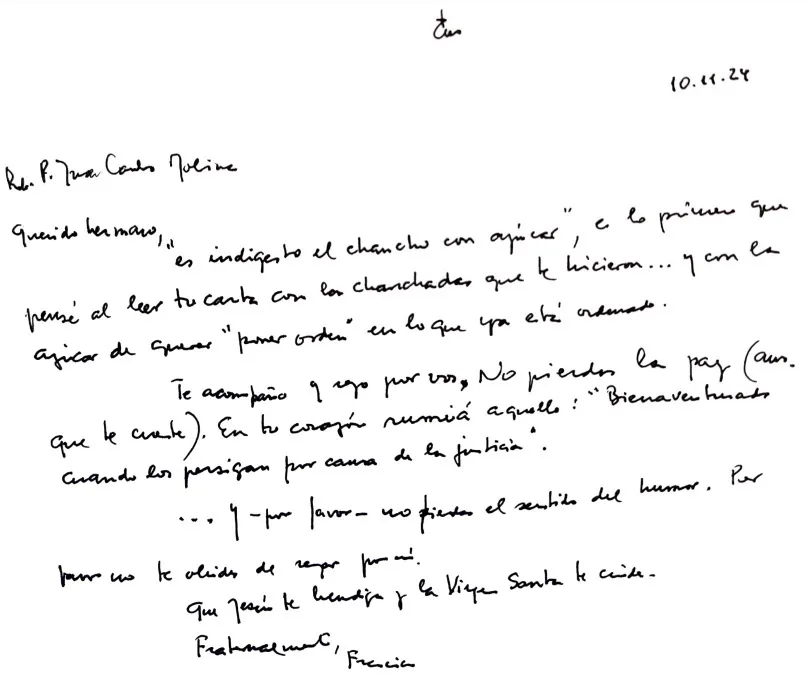 10.11.24
Rdo. P. Juan Carlos Molina
Querido hermano,
"es indigesto el chancho con azúcar", es lo primero que
pensé al leer tu carta con las chanchadas que te hicieron... y con la
azúcar de querer "poner orden" en lo que ya está ordenado.
Te acompaño y rezo por vos. No pierdas la paz (aun-
que te cueste). En tu corazón rumiá aquello: "Bienaventurado
cuando los persigan por causa de la justicia".
... y -por favor- no pierdas el sentido del humor. Por
favor no te olvides de rezar por mí.
Que Jesús te bendiga y la Virgen Santa te cuide.
Fraternalmente,
Francisco